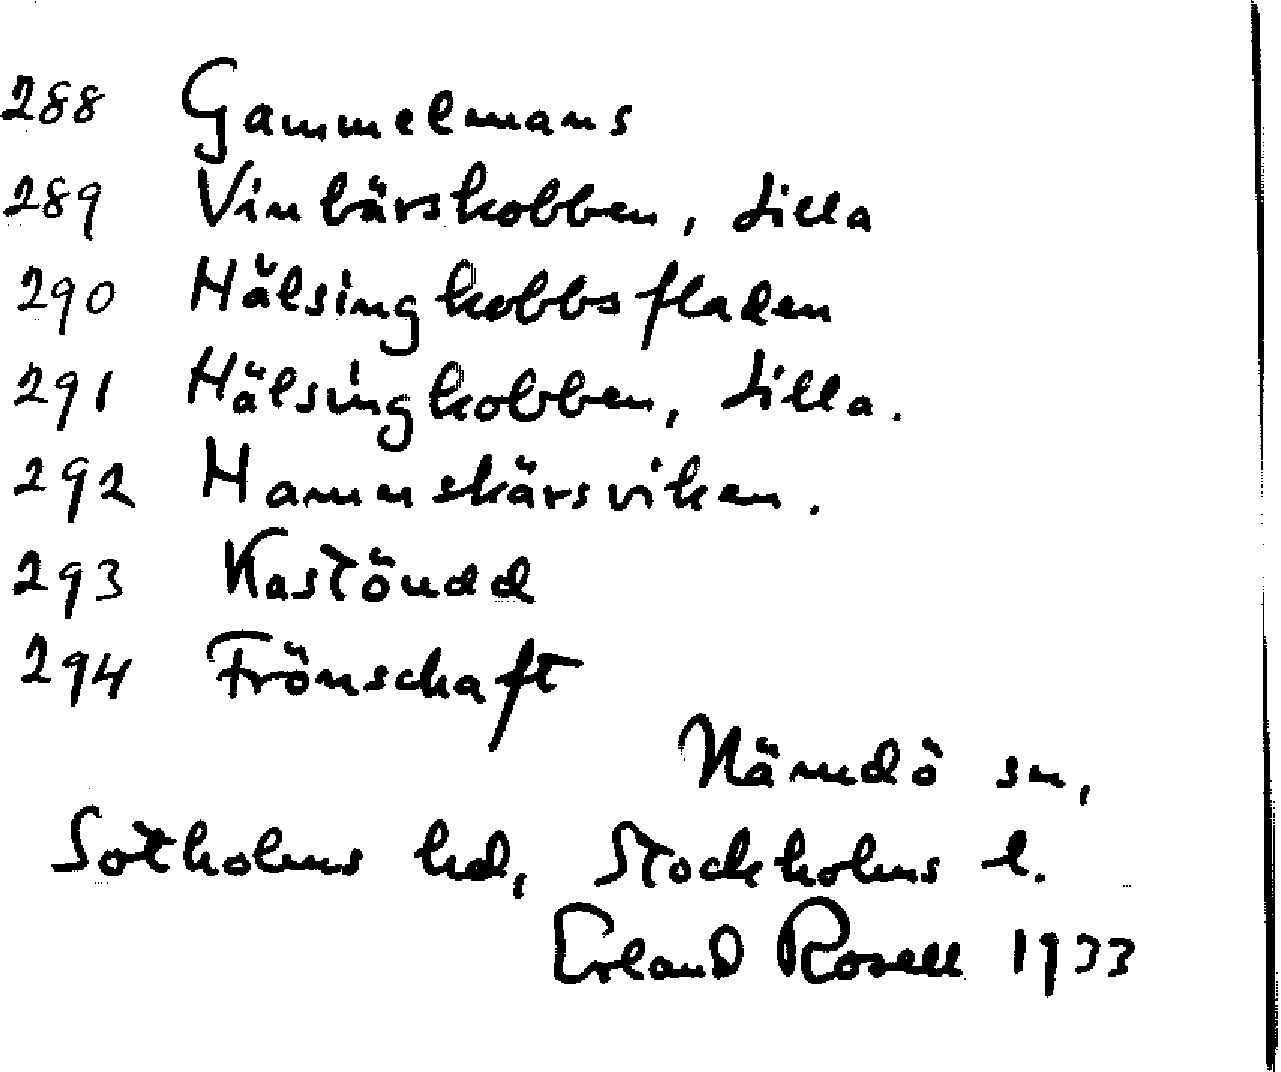 288 Gammelmans
289 Vinbärskobben, Lilla
290 Hälsingkobbsfladen
291 Hälsingkobben, Lilla.
292 Hamnskärsviken.
293 Kastöudd
294 Frönschaft
Nämdö sn,
Sotholms hd, Stockholms l.
Erland Rosell 1933